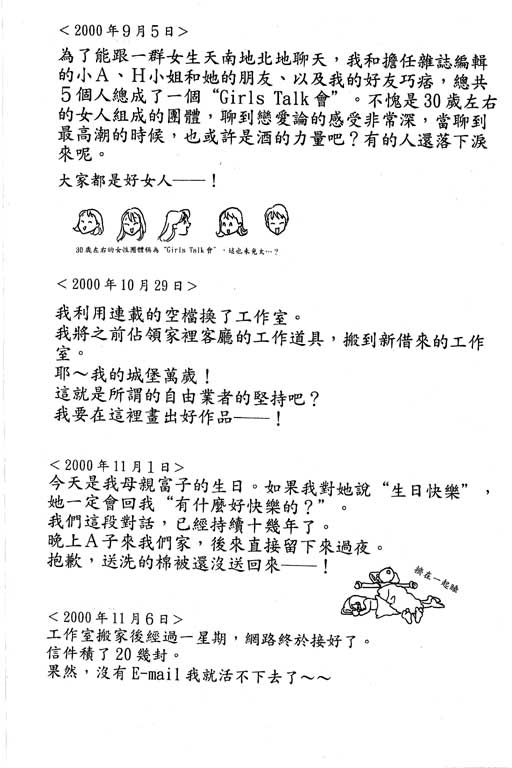 ＜2000年9月5日＞
為了能跟一群女生天南地北地聊天，我和擔任雜誌編輯
的小A、H小姐和她的朋友、以及我的好友巧痞，總共
5個人總成了一個“Girls Talk會”。不愧是30歲左右
的女人組成的團體，聊到戀愛論的感受非常深，當聊到
最高潮的時候，也或許是酒的力量吧？有的人還落下淚
來呢。
大家都是好女人——！
30歲左右的女性團體稱為“Girls Talk會”，這也未免太…？
＜2000年10月29日＞
我利用連載的空檔換了工作室。
我將之前佔領家裡客廳的工作道具，搬到新借來的工作
室。
耶～我的城堡萬歲！
這就是所謂的自由業者的堅持吧？
我要在這裡畫出好作品——！
＜2000年11月1日＞
今天是我母親富子的生日。如果我對她說“生日快樂”，
她一定會回我“有什麼好快樂的？”。
我們這段對話，已經持續十幾年了。
晚上A子來我們家，後來直接留下來過夜。
抱歉，送洗的棉被還沒送回來——！
擠在一起睡
＜2000年11月6日＞
工作室搬家後經過一星期，網路終於接好了。
信件積了20幾封。
果然，沒有E-mail我就活不下去了～～